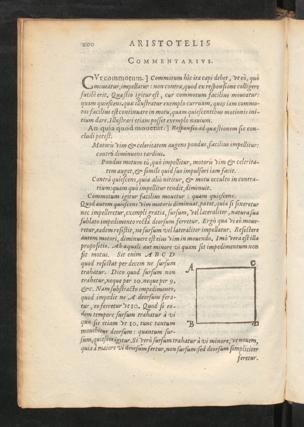 200 ARISTOTELIS
COMMENTARIVS.
CVr commotum.] Commotum hic ita capi debet, ut eò, quò
mouatur, impellatur: non contra, quod ex responsione colligere
facilè erit. Quæstio igitur est, cur commotum facilius moueatur:
quam quiescens, quā illustratur exemplo curruum, quos iam commo-
tos facilius est continuare in motu, quam quiescentibus motionis ini-
tium dare. Illustrari etiam posset exemplo nauium.
An quia quod mouetur.] Responsio ad quæstionem sic con-
cludi potest.
Motoris vim & celeritatem augens pondus, facilius impellitur:
contrà diminuens tardius.
Pondus motum eò, quò impellitur, motoris vim & celerita-
tem auget, & simile quid sui impulsori iam facit.
Contrà quiescens, quia aliò nititur, & motu occulto in contra-
rium quam quò impellitur tendit, diminuit.
Commotum igitur facilius mouetur: quam quiescens.
Quod autem quiescens vim motoris diminuat, patet, quia si sineretur
nec impelleretur, exempli gratia, sursum, vel lateraliter, natura sua
sublato impedimento rectà deorsum ferretur. Ergò qua vi moue-
retur, eadem resistit, ne sursum vel lateraliter impellatur. Resistere
autem motori, diminuere est eius vim in mouendo,
propositio. Ab aqua li aut minore vi quam sit impedimentum non
sit motus. Sit enim A B C D
quod resistat per decem ne sursum
trahatur. Dico quod sursum non
trahetur, neque per 10. neque per 9.
&c. Nam substracto impedimento,
quod impedit ne A deorsum fera-
tur, ex ferretur ut 10. Quod si eo-
dem tempore sursum trahatur à vi
quæ sit etiam ut 10. tunc tantum
mouebitur deorsum: quantum sur-
sum, quiescet igitur. Si verò sursum trahatur à vi minore, ut nouem,
quia à maiore vi deorsum fertur, non sursum sed deorsum simpliciter
feretur.
A C
B D